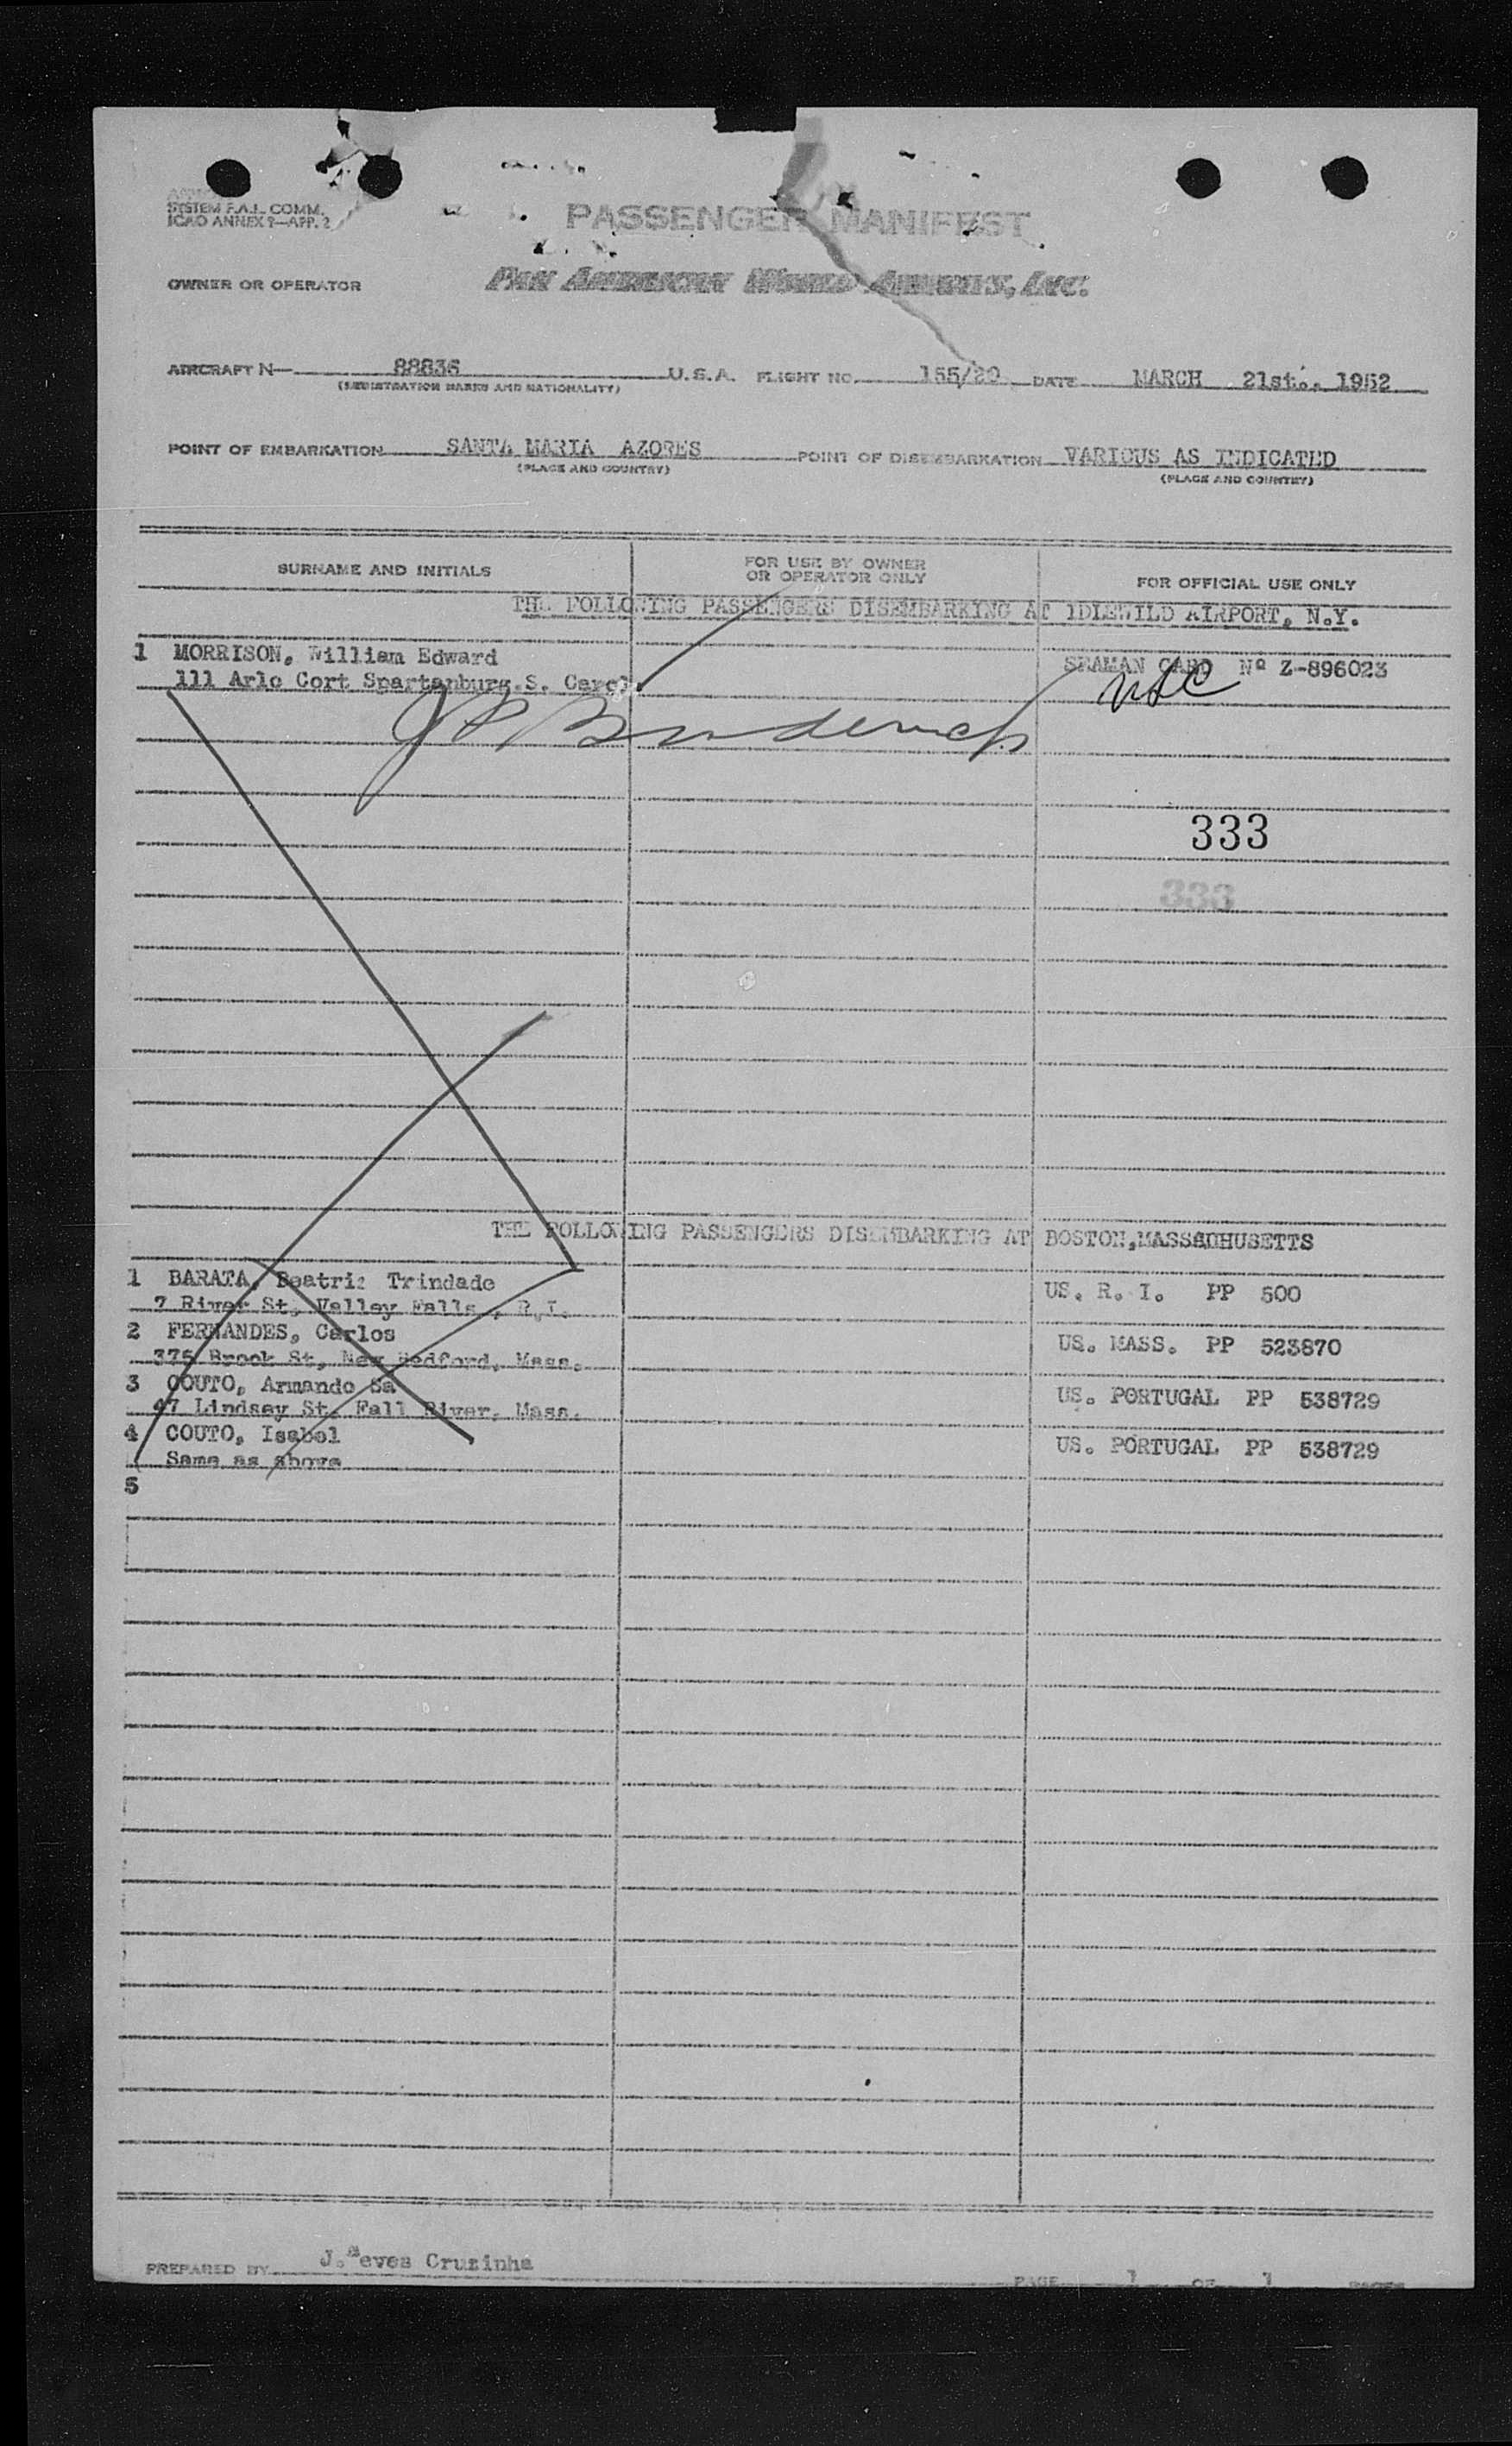 SYSTEM F.A.L. COMM.
ICAO ANNEX 9—APP. 2
PASSENGER MANIFEST
OWNER OR OPERATOR PAN AMERICAN WORLD AIRWAYS, INC.
AIRCRAFT N— 88836 U.S.A. FLIGHT NO. 155/20 DATE MARCH 21st., 1952
(REGISTRATION MARKS AND NATIONALITY)
POINT OF EMBARKATION SANTA MARIA AZORES POINT OF DISEMBARKATION VARIOUS AS INDICATED
(PLACE AND COUNTRY) (PLACE AND COUNTRY)
SURNAME AND INITIALS FOR USE BY OWNER OR OPERATOR ONLY FOR OFFICIAL USE ONLY
THE FOLLOWING PASSENGERS DISEMBARKING AT IDLEWILD AIRPORT, N.Y.
1 MORRISON, William Edward SEAMAN CARD Nº Z-896023
111 Arlo Cort Spartanburg.S. Carol. USC
333
333
THE FOLLOWING PASSENGERS DISEMBARKING AT BOSTON,MASSACHUSETTS
1 BARATA, Beatriz Trindade US. R. I. PP 500
7 River St, Valley Falls, R.I.
2 FERNANDES, Carlos US. MASS. PP 523870
375 Brook St, New Bedford, Mass.
3 COUTO, Armando Sa US. PORTUGAL PP 538729
47 Lindsey St. Fall River, Mass.
4 COUTO, Isabel US. PORTUGAL PP 538729
Same as above
5
PREPARED BY J. eves Cruzinha
PAGE 1 OF 1 PAGES